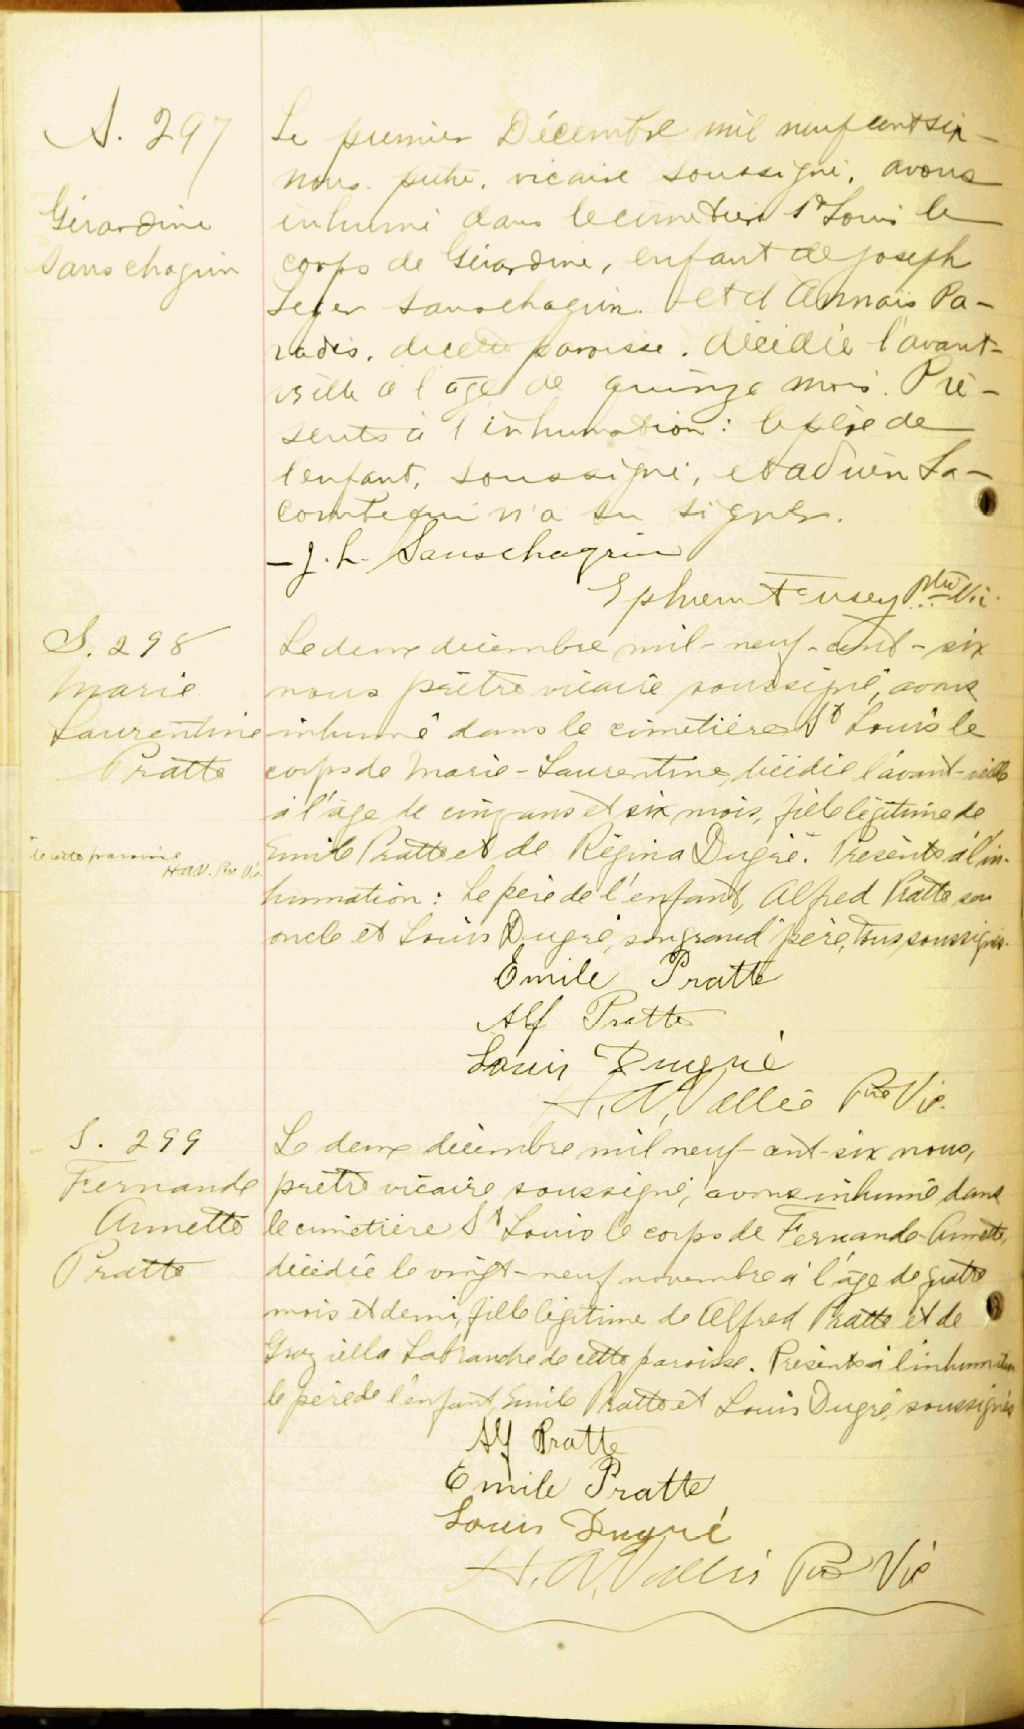 S. 297
Gérardine
Sanschagrin
Le premier Décembre mil neuf cent six
nous. prêtre. vicaire soussigné, avons
inhumé dans le cimetière St Louis le
corps de Gérardine, enfant de Joseph
Leger Sanschagrin. et d'Annais Pa-
radis. de cette paroisse. décédée l'avant-
veille à l'âge de quinze mois. Pré-
sents à l'inhumation: le père de
l'enfant, soussigné, et Adrien La-
comte qui n'a su signer.
- J. L. Sanschagrin
Ephrem Fusey Ptre Vic.
S. 298
Marie
Laurentine
Pratte
de cette paroisse
H.A.V. Ptre Vic
Le deux décembre mil-neuf-cent-six
nous prêtre vicaire soussigné, avons
inhumé dans le cimetière St Louis le
corps de Marie-Laurentine, décédée l'avant-veille
à l'âge de cinq ans et six mois, fille légitime de
Emile Pratte et de Régina Dugré. Présents à l'in-
humation: Le père de l'enfant, Alfred Pratte son
oncle et Louis Dugré, son grand père, tous soussignés.
Emile Pratte
Alf Pratte
Louis Dugré
H. A. Vallée Ptre Vic.
S. 299
Fernande
Annette
Pratte
Le deux décembre mil neuf-cent-six nous,
prêtre vicaire soussigné, avons inhumé dans
le cimetière St Louis le corps de Fernande-Annette,
décédée le vingt-neuf novembre à l'âge de quatre
mois et demi, fille légitime de Alfred Pratte et de
Graziella Labranche de cette paroisse. Présents à l'inhumation
le père de l'enfant, Emile Pratte et Louis Dugré, soussignés
Alf Pratte
Emile Pratte
Louis Dugré
H. A. Vallée Ptre Vic